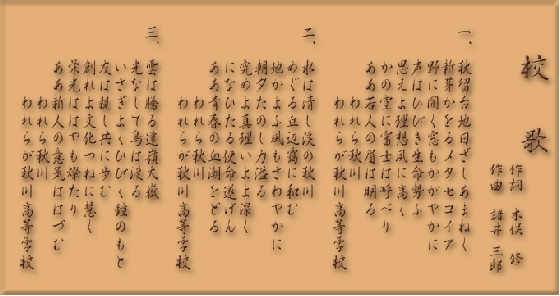 校歌
作詞 木俣 修
作曲 諸井 三郎
一、
秋留台地日ざしあまねく
新芽かをるメタセコイア
野に開く窓もかがやかに
声はひびき生命呼ぶ
思えよ理想風に高く
かの空に富士は呼べり
ああ若人の眉は明る
われら秋川
われらが秋川高等学校
二、
水は清し渓の秋川
めぐる丘辺霧に和む
地かよふ風もさわやかに
朝夕たのし力溢る
究めよ真理いよよ深く
になひたる使命遂げん
ああ青春の血潮をどる
われら秋川
われらが秋川高等学校
三、
雲は騰る連嶺大嶽
光なして鳥は渡る
いさぎよくひびく鐘のもと
友は親し共に歩む
創れよ文化つねに慧く
栄光ははや燦たり
ああ新人の意気ははづむ
われら秋川
われらが秋川高等学校